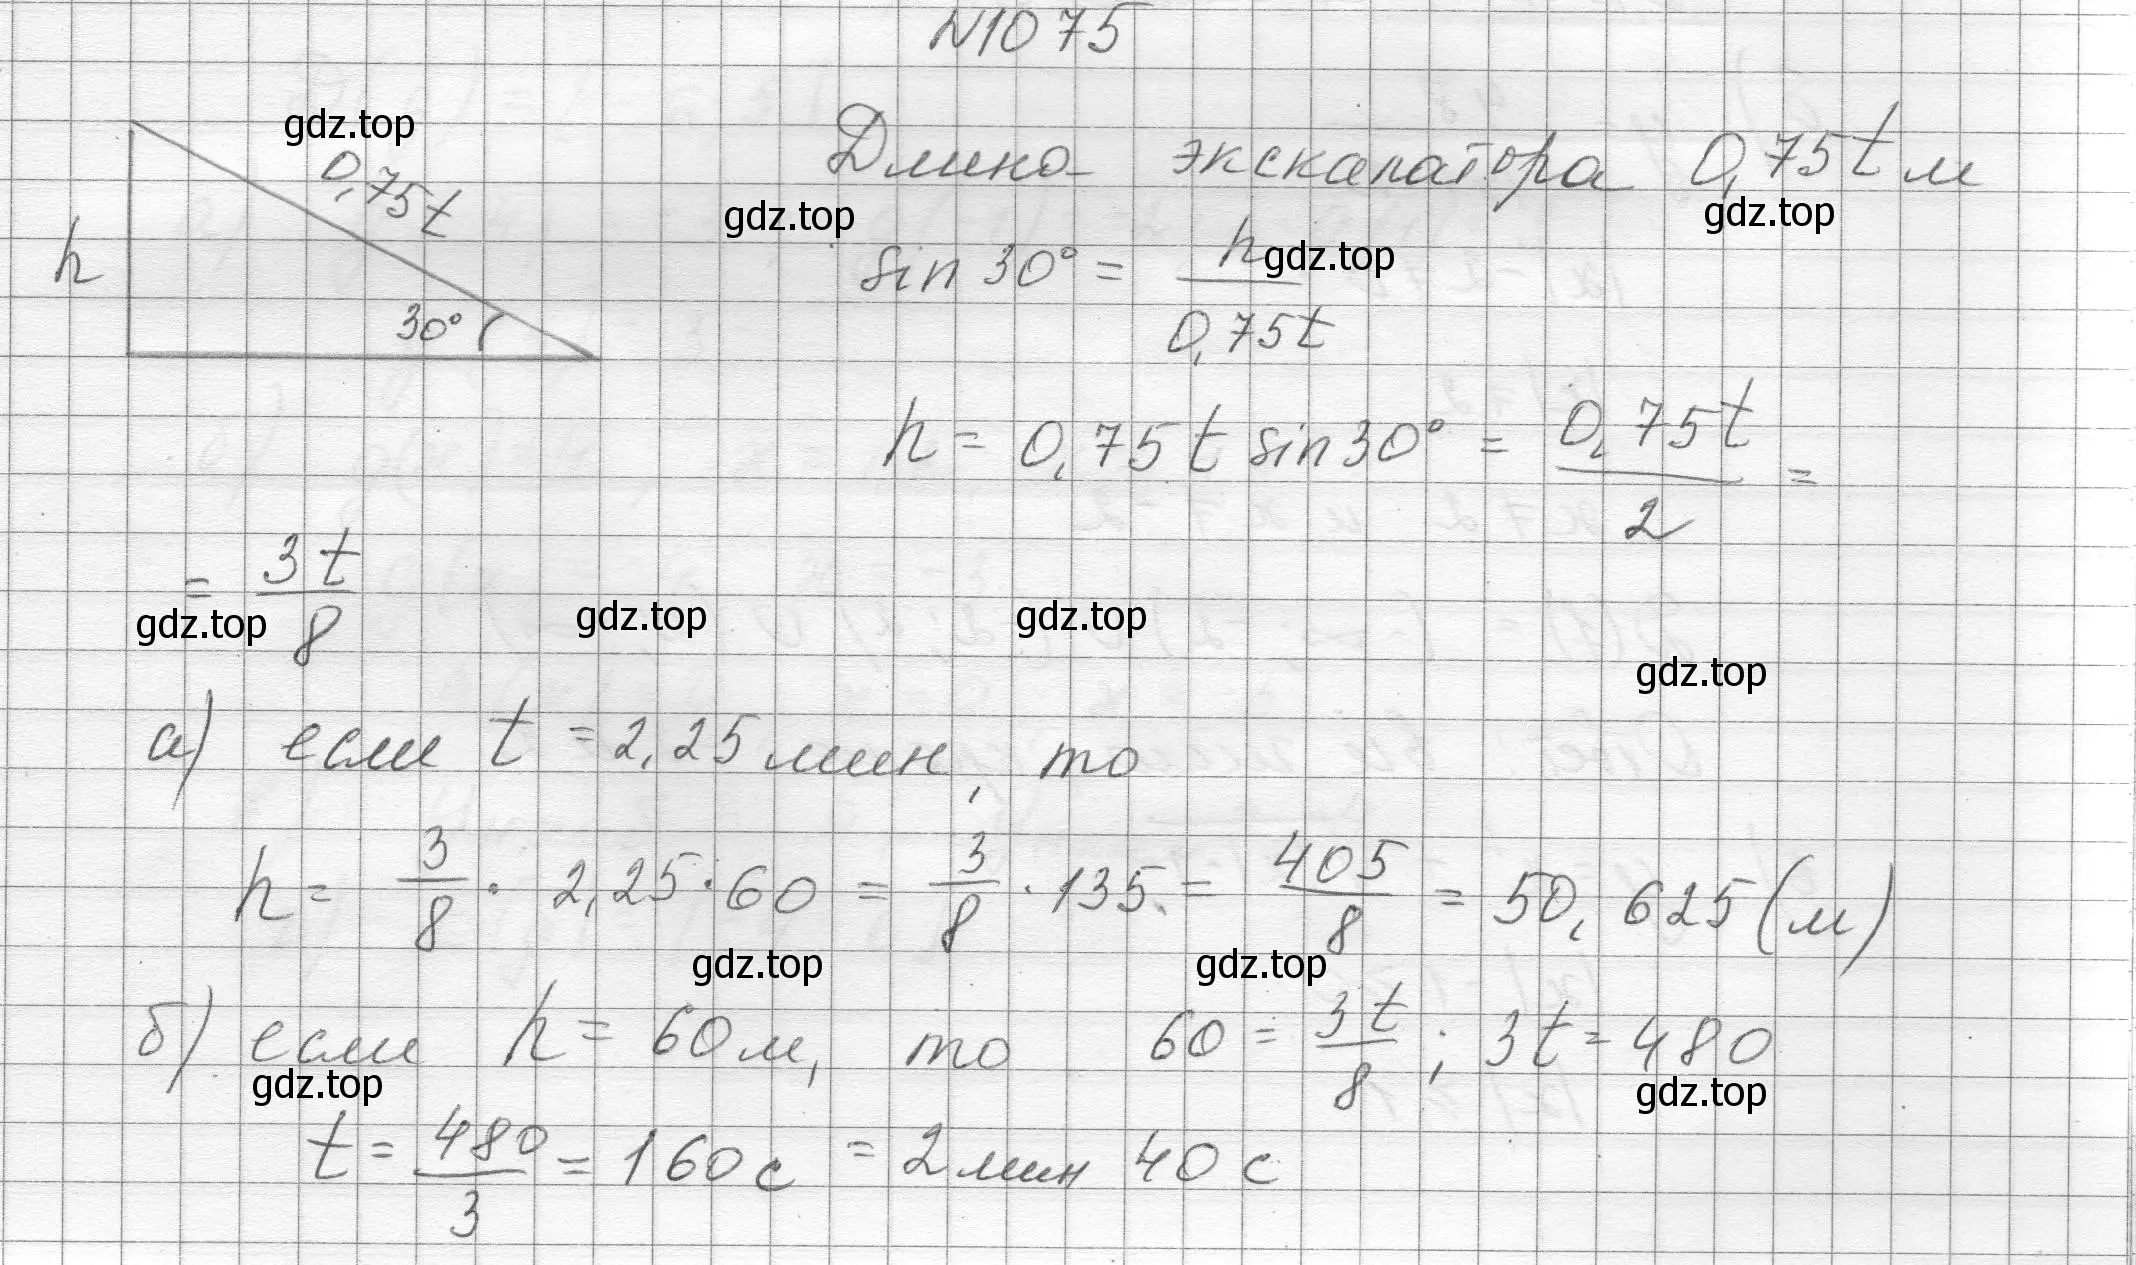 N1075
gdz.top
0,75t
h
30°
Длина эскалатора 0,75t м
gdz.top
gdz.top
sin 30° = h / 0,75t
gdz.top
h = 0,75t sin30° = 0,75t / 2 =
= 3t / 8
gdz.top
gdz.top
gdz.top
gdz.top
а) если t = 2,25 мин, то
h = 3/8 · 2,25 · 60 = 3/8 · 135 = 405/8 = 50,625 (м)
gdz.top
gdz.top
б) если h = 60 м, то 60 = 3t/8 ; 3t = 480
gdz.top
gdz.top
t = 480/3 = 160 с = 2 мин 40 с